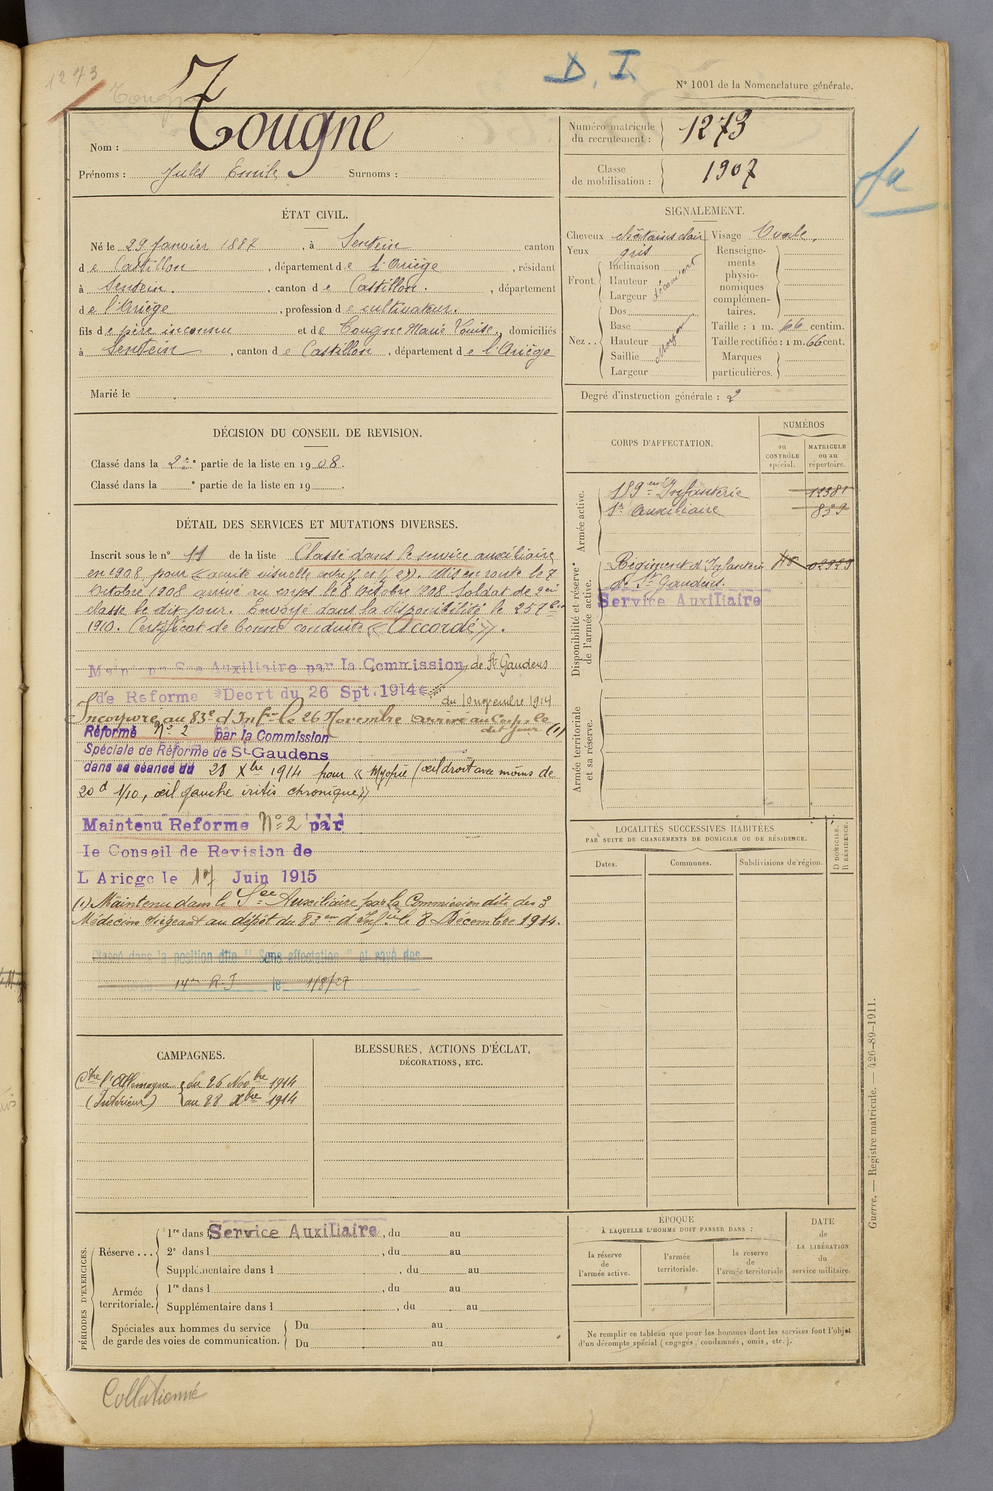 1273
Tougne
D. I.
N° 1001 de la Nomenclature générale.
Nom : Tougne
Prénoms : Jules Emile Surnoms :
Numéro matricule du recrutement : 1273
Classe de mobilisation : 1907
ÉTAT CIVIL.
Né le 29 Janvier 1887, à Sentein canton
de Castillon, département de l'Ariège, résidant
à Sentein, canton de Castillon, département
de l'Ariège, profession de cultivateur.
fils de père inconnu et de Tougne Marie Louise, domiciliés
à Sentein, canton de Castillon, département de l'Ariège
Marié le
SIGNALEMENT.
Cheveux châtains clair Visage Ovale.
Yeux gris
Front Inclinaison
Hauteur
Largeur
Nez Dos
Base
Hauteur
Saillie
Largeur
moyen
Renseignements physionomiques complémentaires.
Taille : 1 m. 66 centim.
Taille rectifiée : 1 m. 66 cent.
Marques particulières.
Degré d'instruction générale : 2
DÉCISION DU CONSEIL DE REVISION.
Classé dans la 2e partie de la liste en 1908.
Classé dans la ° partie de la liste en 19
CORPS D'AFFECTATION.
NUMÉROS
au CONTRÔLE spécial.
MATRICULE ou au répertoire.
Armée active.
Infanterie
Sr Auxiliaire
Disponibilité et réserve de l'armée active.
Régiment d'Infanterie
de St Gaudens
Service Auxiliaire
Armée territoriale et sa réserve.
DÉTAIL DES SERVICES ET MUTATIONS DIVERSES.
Inscrit sous le n° 11 de la liste Classé dans le service auxiliaire
en 1908 pour acuité visuelle Mis en route le 7
Octobre 1908 arrivé au corps le 8 Octobre 1908 Soldat de 2e
classe le dit jour. Envoyé dans la disponibilité le 25 7bre
1910. Certificat de bonne conduite « Accordé ».
Maintenu Sce Auxiliaire par la Commission de St Gaudens
de Reforme Decrt du 26 Spt. 1914 du 10 novembre 1914
Incorporé au 83e d'Infie le 26 Novembre arrivé au corps le dit jour (1)
Réformé N° 2 par la Commission
Spéciale de Réforme de St Gaudens
dans sa séance du 28 Xbre 1914 pour « Myopie (œil droit avec moins de
20d 1/10, œil gauche iritis chronique »
Maintenu Reforme N° 2 par
le Conseil de Revision de
L Ariege le 17 Juin 1915
(1) Maintenu dans le Sce Auxiliaire par la Commission dite des 3
Médecins siégeant au dépôt du 83em d'Infie le 8 Décembre 1914.
Classé dans la position dite "Sans affectation" et rayé des
14e R.I le 1/8/27
CAMPAGNES.
Ctre l'Allemagne du 26 Novbre 1914
(Intérieur) au 28 Xbre 1914
BLESSURES, ACTIONS D'ÉCLAT,
DÉCORATIONS, ETC.
LOCALITÉS SUCCESSIVES HABITÉES
PAR SUITE DE CHANGEMENTS DE DOMICILE OU DE RÉSIDENCE.
Dates.
Communes.
Subdivisions de région.
D DOMICILE. R RÉSIDENCE.
PÉRIODES D'EXERCICES.
Réserve ... 1re dans l Service Auxiliaire, du au
2e dans l , du au
Supplémentaire dans l , du au
Armée territoriale. 1re dans l , du au
Supplémentaire dans l , du au
Spéciales aux hommes du service de garde des voies de communication. Du au
Du au
ÉPOQUE
À LAQUELLE L'HOMME DOIT PASSER DANS :
la réserve de l'armée active.
l'armée territoriale.
la réserve de l'armée territoriale
DATE de LA LIBÉRATION du service militaire.
Ne remplir ce tableau que pour les hommes dont les services font l'objet
d'un décompte spécial (engagés, condamnés, omis, etc.).
Guerre. — Registre matricule. — 426-89-1911.
Collationné